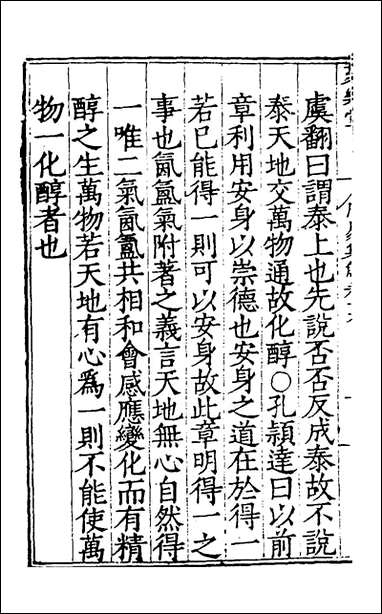 虞翻曰謂泰上也先說否否反成泰故不說
泰天地交萬物通故化醇○孔頴達曰以前
章利用安身以崇德也安身之道在於得一
若已能得一則可以安身故此章明得一之
事也氤氳氣附著之義言天地無心自然得
一唯二氣氤氳共相和會感應變化而有精
醇之生萬物若天地有心爲一則不能使萬
物一化醇者也